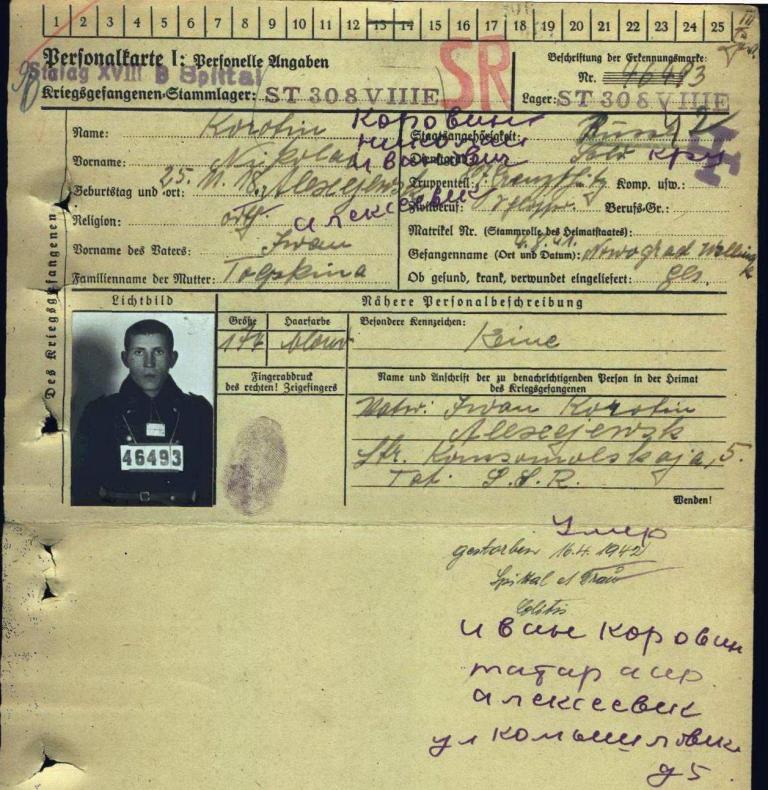 1 2 3 4 5 6 7 8 9 10 11 12 13 14 15 16 17 18 19 20 21 22 23 24 25
Personalkarte I: Personelle Angaben
Stalag XVIII B Spittal
Kriegsgefangenen-Stammlager: ST 308 VIIIE
SR
Beschriftung der Erkennungsmarke:
Nr. 46493
Lager: ST 308 VIIIE
Des Kriegsgefangenen
Name: Korotin Коровин
Vorname: Nikolai николай
иванович
Geburtstag und -ort: 25. Aleksejewsk
алексеевск
Religion: orth.
Vorname des Vaters: Iwan
Familienname der Mutter: Tolpkina
Staatsangehörigkeit: Russe
Dienstgrad: Sold
Truppenteil: Komp. usw.:
Zivilberuf: Berufs-Gr.:
Matrikel Nr. (Stammrolle des Heimatstaates):
Gefangennahme (Ort und Datum): 4.8.41. Nowograd Wollinsk
Ob gesund, krank, verwundet eingeliefert: ges.
Lichtbild
46493
Nähere Personalbeschreibung
Größe Haarfarbe Besondere Kennzeichen:
176 blond Keine
Fingerabdruck
des rechten! Zeigefingers
Name und Anschrift der zu benachrichtigenden Person in der Heimat
des Kriegsgefangenen
Vater: Iwan Korotin
Aleksejewsk
Str. Komsomolskaja, 5.
Tat. S.S.R.
Wenden!
Умер
gestorben 16.4.1942
Spittal a/Drau
Colitis
иван Коровин
татар аср
алексеевск
ул
д 5.